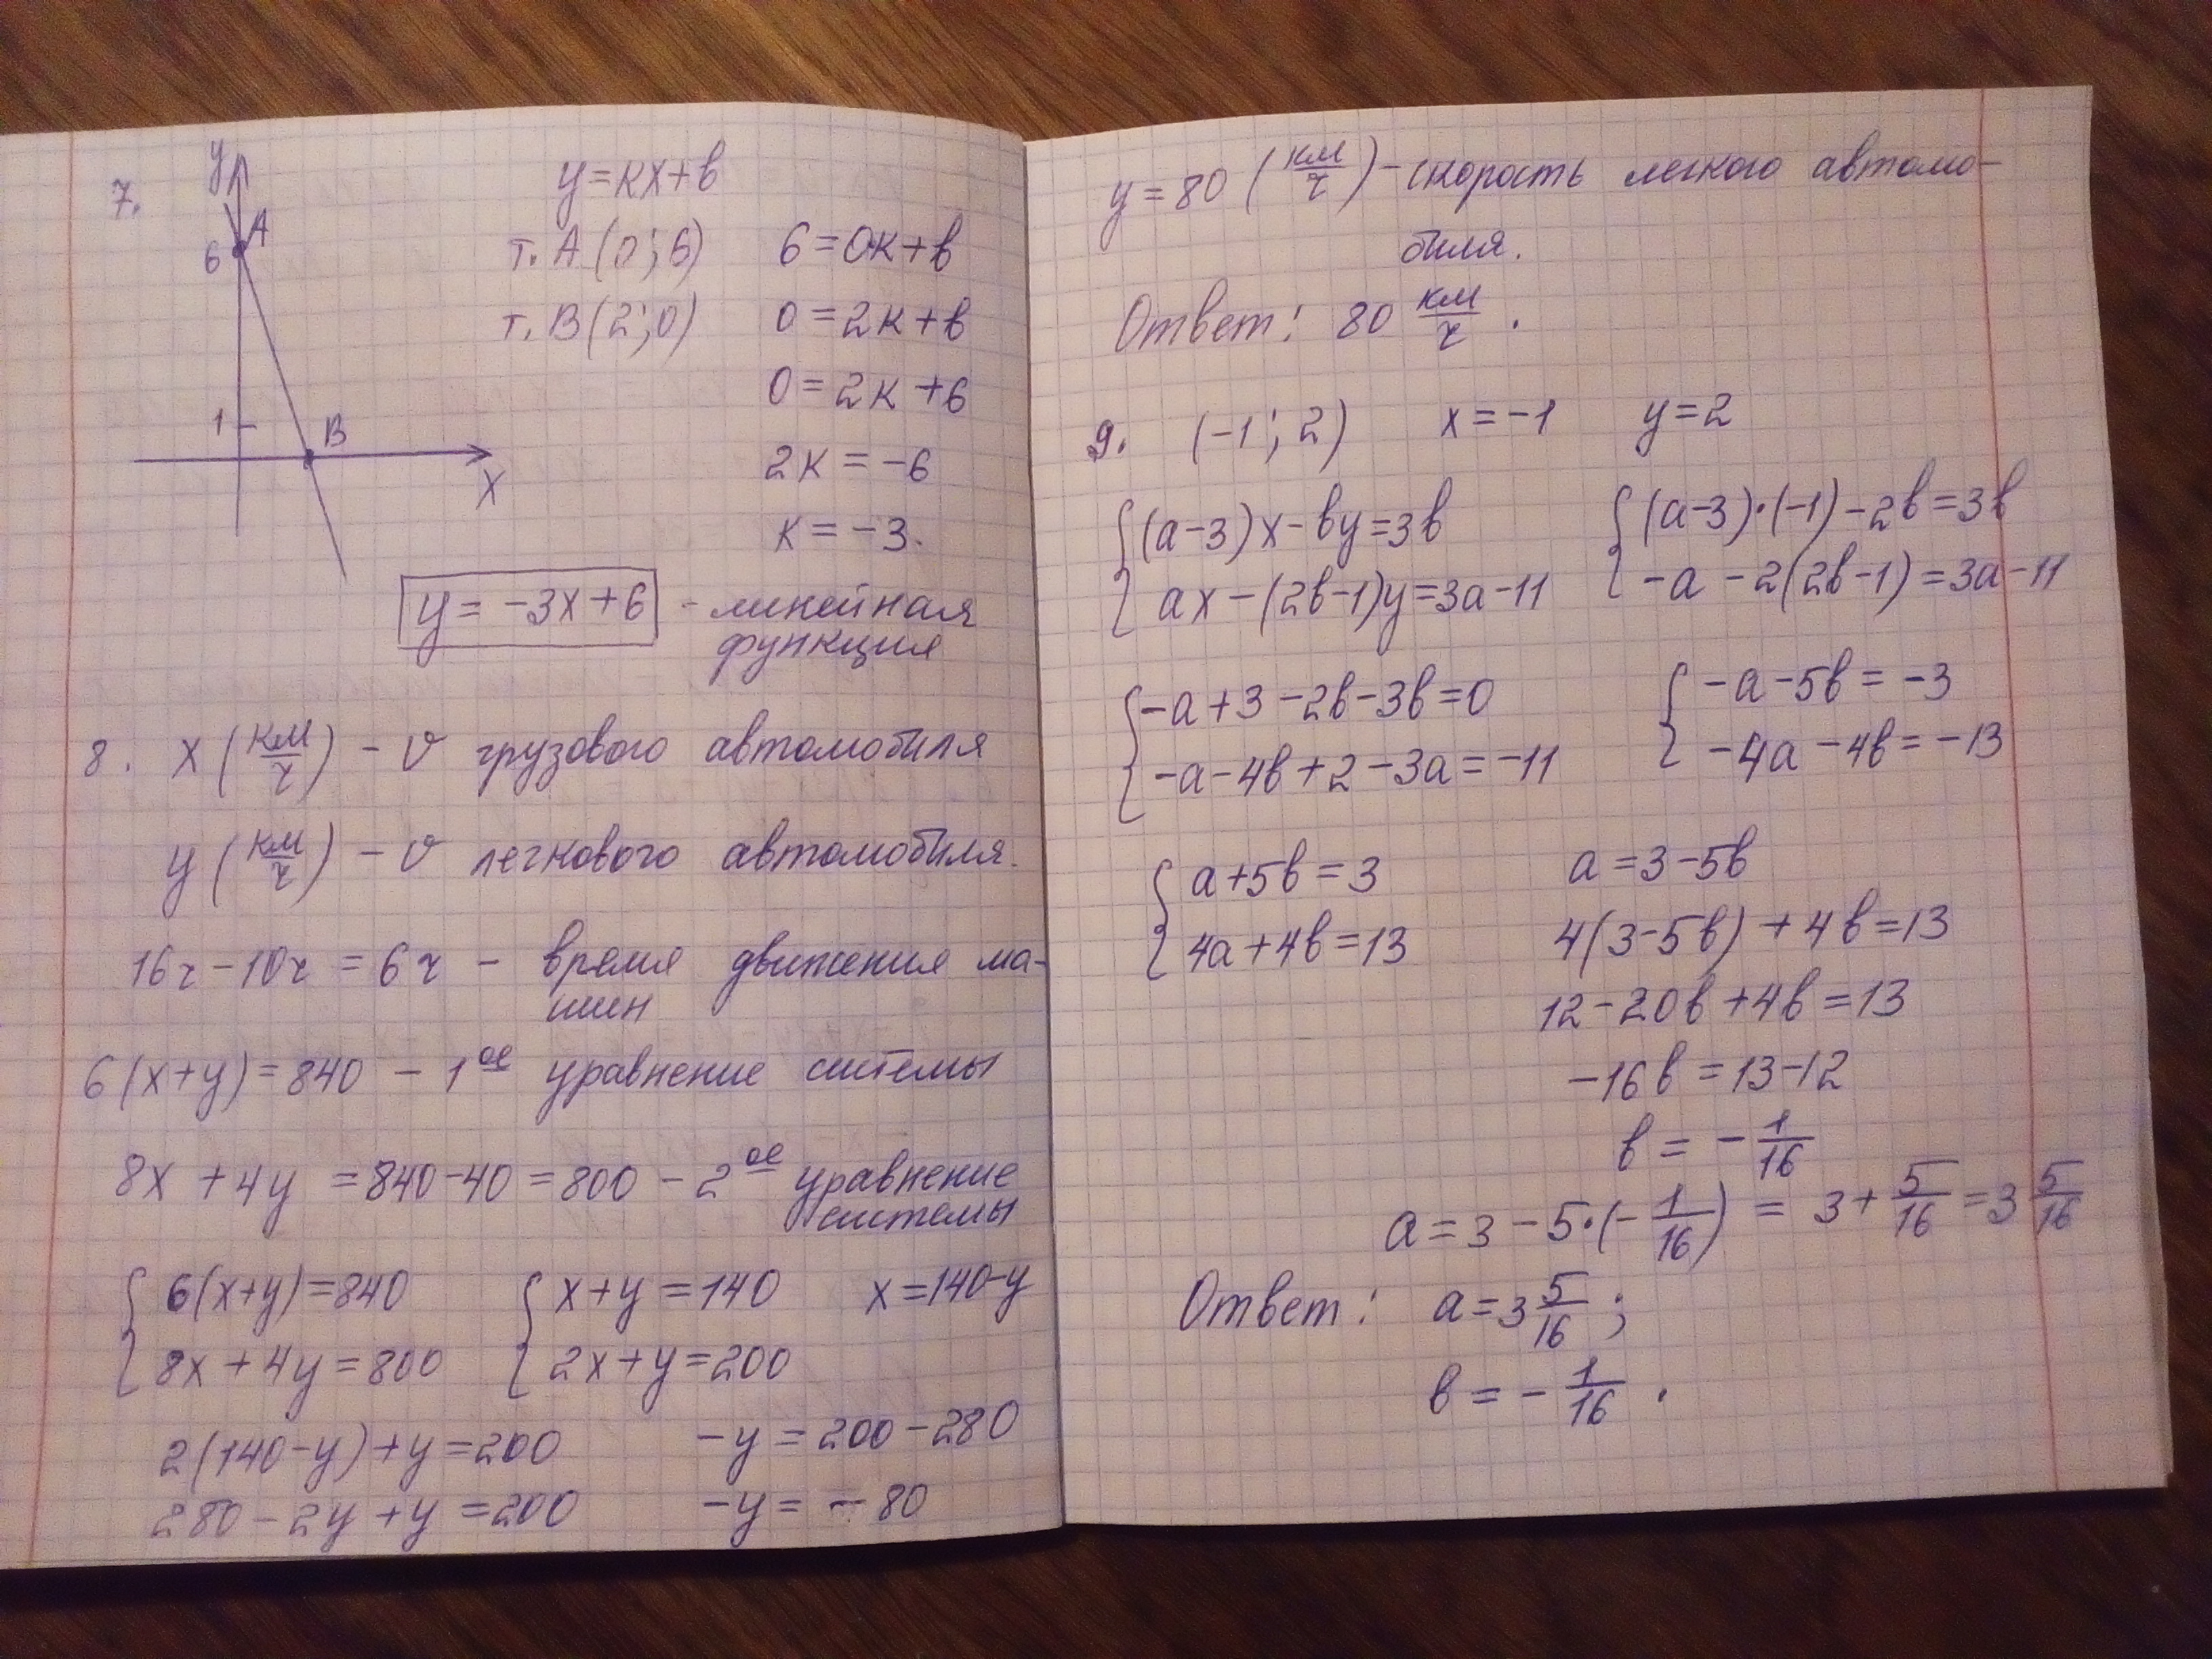 7.
y
A
6
1
B
x
y=кx+в
т. A (0; 6) 6=0к+в
т. B (2; 0) 0=2к+в
0=2к+6
2к=-6
к=-3.
y=-3x+6 - линейная
функция
8. x (км/ч) - v грузового автомобиля
y (км/ч) - v легкового автомобиля.
16ч-10ч=6ч - время движения ма-
шин
6(x+y)=840 - 1ое уравнение системы
8x+4y=840-40=800 - 2ое уравнение
системы
{6(x+y)=840 {x+y=140 x=140-y
{8x+4y=800 {2x+y=200
2(140-y)+y=200 -y=200-280
280-2y+y=200 -y=-80
y=80 (км/ч) - скорость легкого автомо-
биля.
Ответ: 80 км/ч.
9. (-1; 2) x=-1 y=2
{(a-3)x-вy=3в {(a-3)·(-1)-2в=3в
{ax-(2в-1)y=3a-11 {-a-2(2в-1)=3a-11
{-a+3-2в-3в=0 {-a-5в=-3
{-a-4в+2-3a=-11 {-4a-4в=-13
{a+5в=3 a=3-5в
{4a+4в=13 4(3-5в)+4в=13
12-20в+4в=13
-16в=13-12
в=-1/16
a=3-5·(-1/16)=3+5/16=3 5/16
Ответ: a=3 5/16;
в=-1/16.